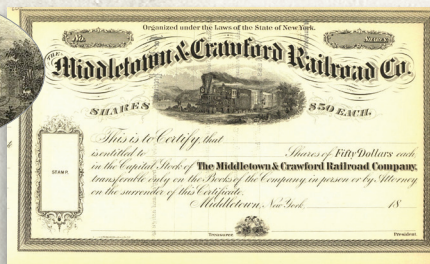 Organized under the Laws of the State of New York.
No.
Shares
THE
Middletown & Crawford Railroad Co.
SHARES $50 EACH.
This is to Certify, that
is entitled to Shares of Fifty Dollars each
in the Capital Stock of The Middletown & Crawford Railroad Company,
transferable only on the Books of the Company in person or by Attorney
on the surrender of this Certificate.
STAMP.
Middletown, New York 18
Treasurer President